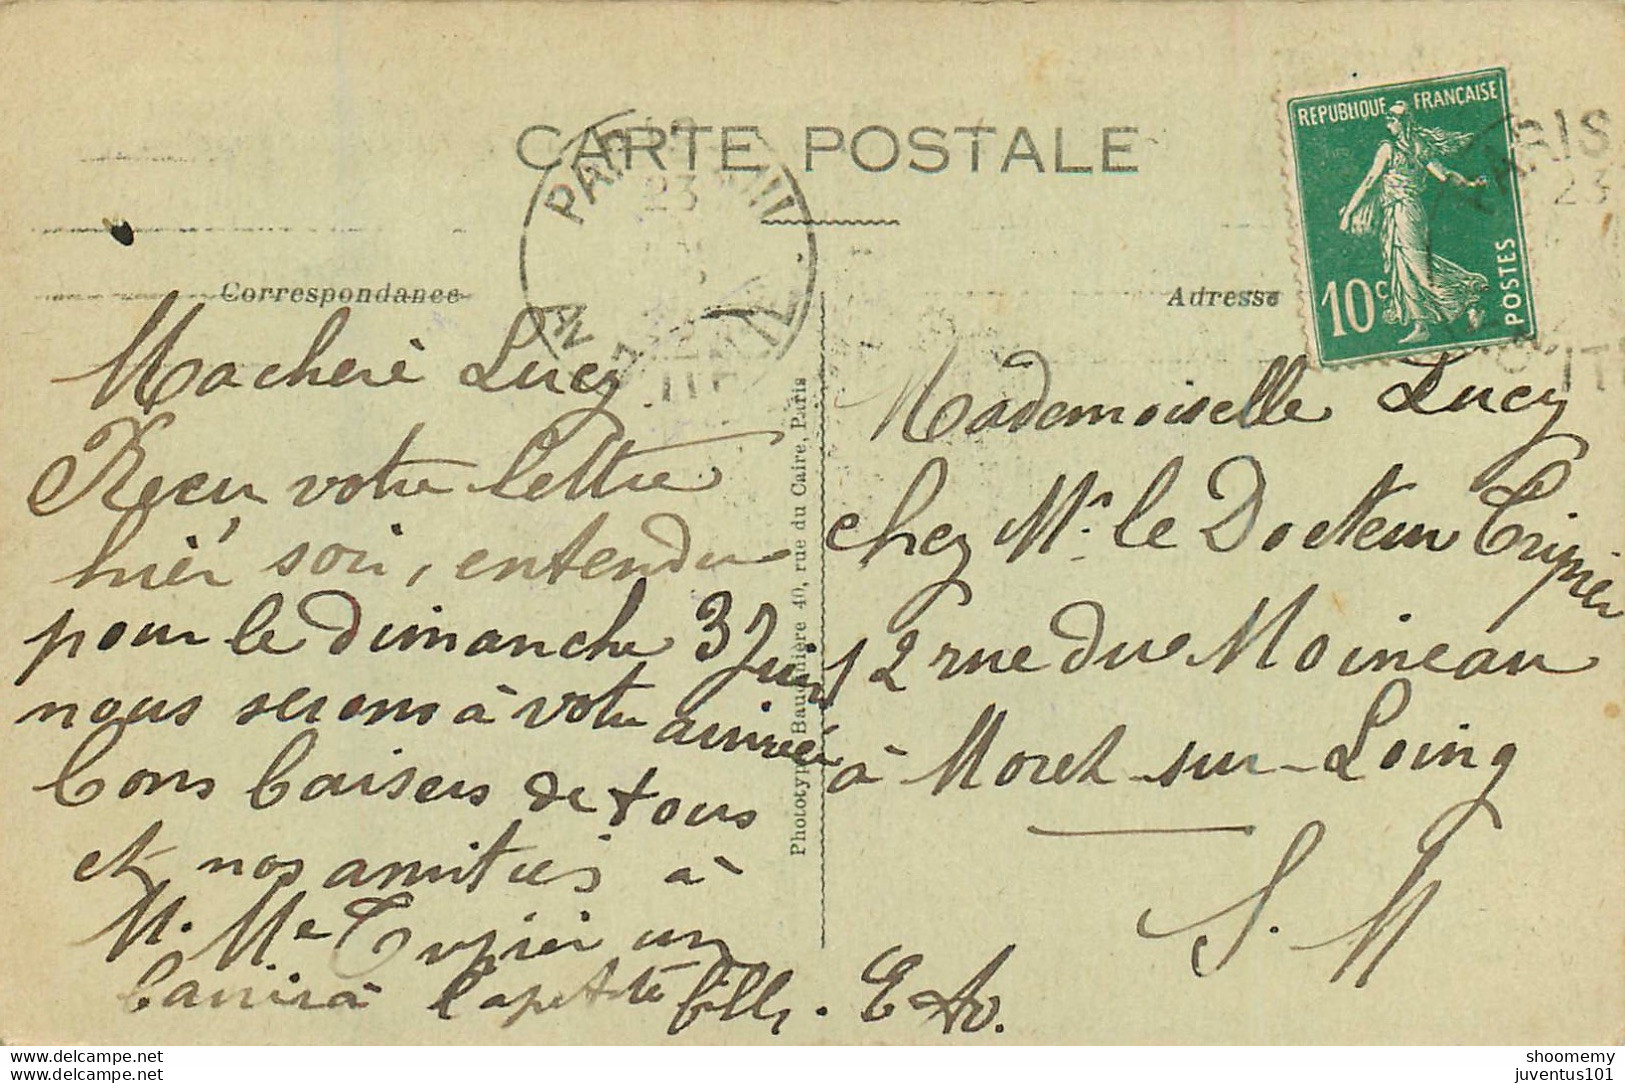 CARTE POSTALE
REPUBLIQUE FRANÇAISE
10c
POSTES
PARIS
23
PARIS
23
Correspondance
Adresse
Ma cheré Lucy
Recu votre lettre
hièr soir, entendu
pour le dimanche 3 Juin
nous serons à votre arrivée
bons baisers de tous
et nos amitiés à
M. Me Tripier un
baiser à la petite fille. E Av.
Phototypie Baudinière 40, rue du Caire, Paris
Mademoiselle Lucy
chez Mr. le Docteur Tripier
12 rue du Moineau
à Moret-sur-Loing
S. M
www.delcampe.net
www.delcampe.net
shoomemy
juventus101